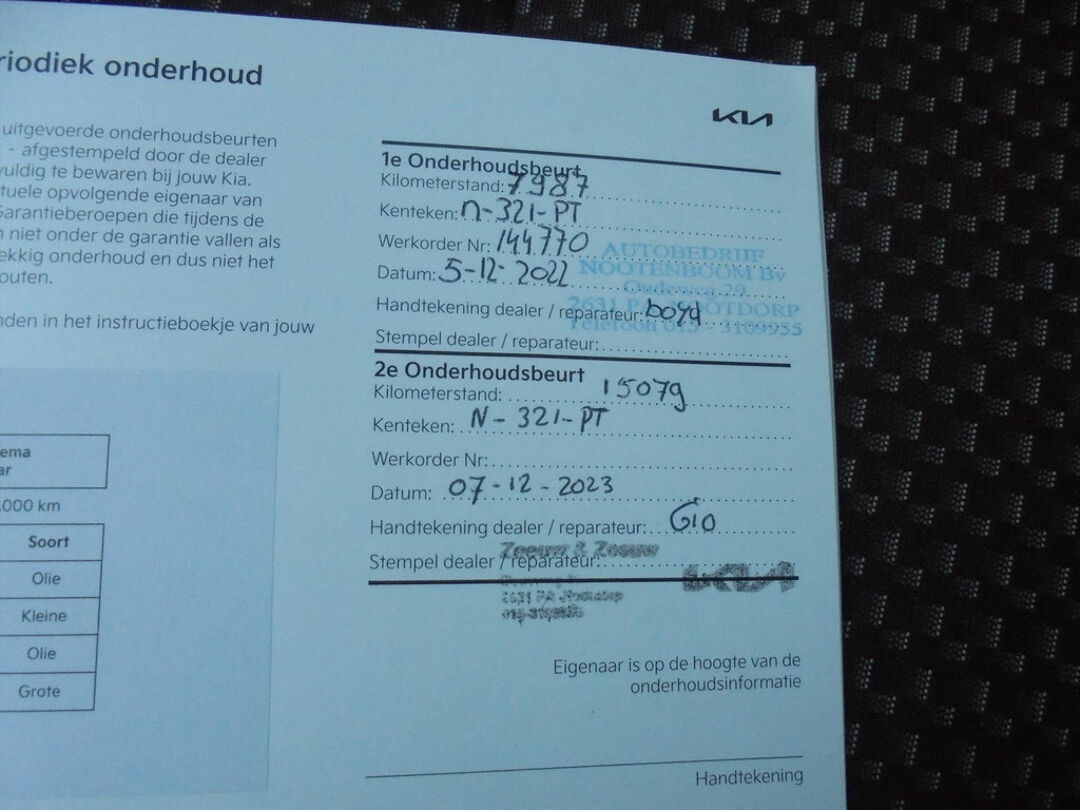 riodiek onderhoud
uitgevoerde onderhoudsbeurten
- afgestempeld door de dealer
vuldig te bewaren bij jouw Kia.
tuele opvolgende eigenaar van
Garantieberoepen die tijdens de
n niet onder de garantie vallen als
ekkig onderhoud en dus niet het
outen.
nden in het instructieboekje van jouw
ema
ar
.000 km
Soort
Olie
Kleine
Olie
Grote
KIA
1e Onderhoudsbeurt
Kilometerstand: 7987
Kenteken: N-321-PT
Werkorder Nr: 144770
Datum: 5-12-2022
Handtekening dealer / reparateur: boyd
Stempel dealer / reparateur:
AUTOBEDRIJF
NOOTENBOOM BV
Oudeweg 29
2631 PA NOOTDORP
Telefoon 015 - 3109955
2e Onderhoudsbeurt
Kilometerstand: 15079
Kenteken: N-321-PT
Werkorder Nr:
Datum: 07-12-2023
Handtekening dealer / reparateur: Gio
Stempel dealer / reparateur:
Zeeuw & Zeeuw
KIA
2631 PA Nootdorp
Eigenaar is op de hoogte van de
onderhoudsinformatie
Handtekening